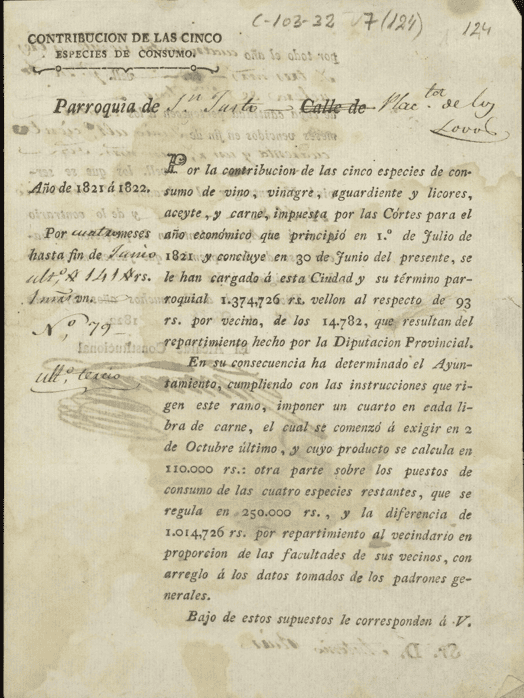 C-103-32 V7(124) 124
CONTRIBUCION DE LAS CINCO
ESPECIES DE CONSUMO.
Parroquia de Sn. Justo Calle de Plac.ta de los
Lovos
Año de 1821 á 1822.
Por cuatro meses
hasta fin de Junio
ult.º 141 rs.
vn.
N.º 79
ult.º tercio
Por la contribucion de las cinco especies de con-
sumo de vino, vinagre, aguardiente y licores,
aceyte, y carne, impuesta por las Córtes para el
año económico que principió en 1.º de Julio de
1821 y concluye en 30 de Junio del presente, se
le han cargado á esta Ciudad y su término par-
roquial 1.374,726 rs. vellon al respecto de 93
rs. por vecino, de los 14.782, que resultan del
repartimiento hecho por la Diputacion Provincial.
En su consecuencia ha determinado el Ayun-
tamiento, cumpliendo con las instrucciones que ri-
gen este ramo, imponer un cuarto en cada li-
bra de carne, el cual se comenzó á exigir en 2
de Octubre último, y cuyo producto se calcula en
110.000 rs.: otra parte sobre los puestos de
consumo de las cuatro especies restantes, que se
regula en 250.000 rs., y la diferencia de
1.014,726 rs. por repartimiento al vecindario en
proporcion de las facultades de sus vecinos, con
arreglo á los datos tomados de los padrones ge-
nerales.
Bajo de estos supuestos le corresponden á V.